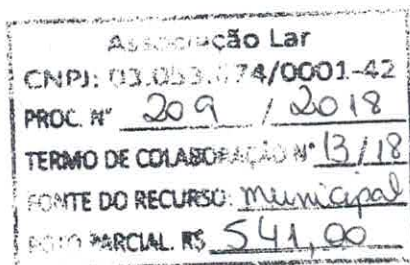 Associação Lar
CNPJ: 03.053.874/0001-42
PROC. Nº 209 / 2018
TERMO DE COLABORAÇÃO Nº 13/18
FONTE DO RECURSO: municipal
PARCIAL. R$ 541,00